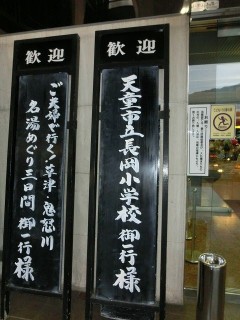 歓迎
天童市立長岡小学校 御一行様
歓迎
ご夫婦で行く！草津・鬼怒川
名湯めぐり三日間 御一行様